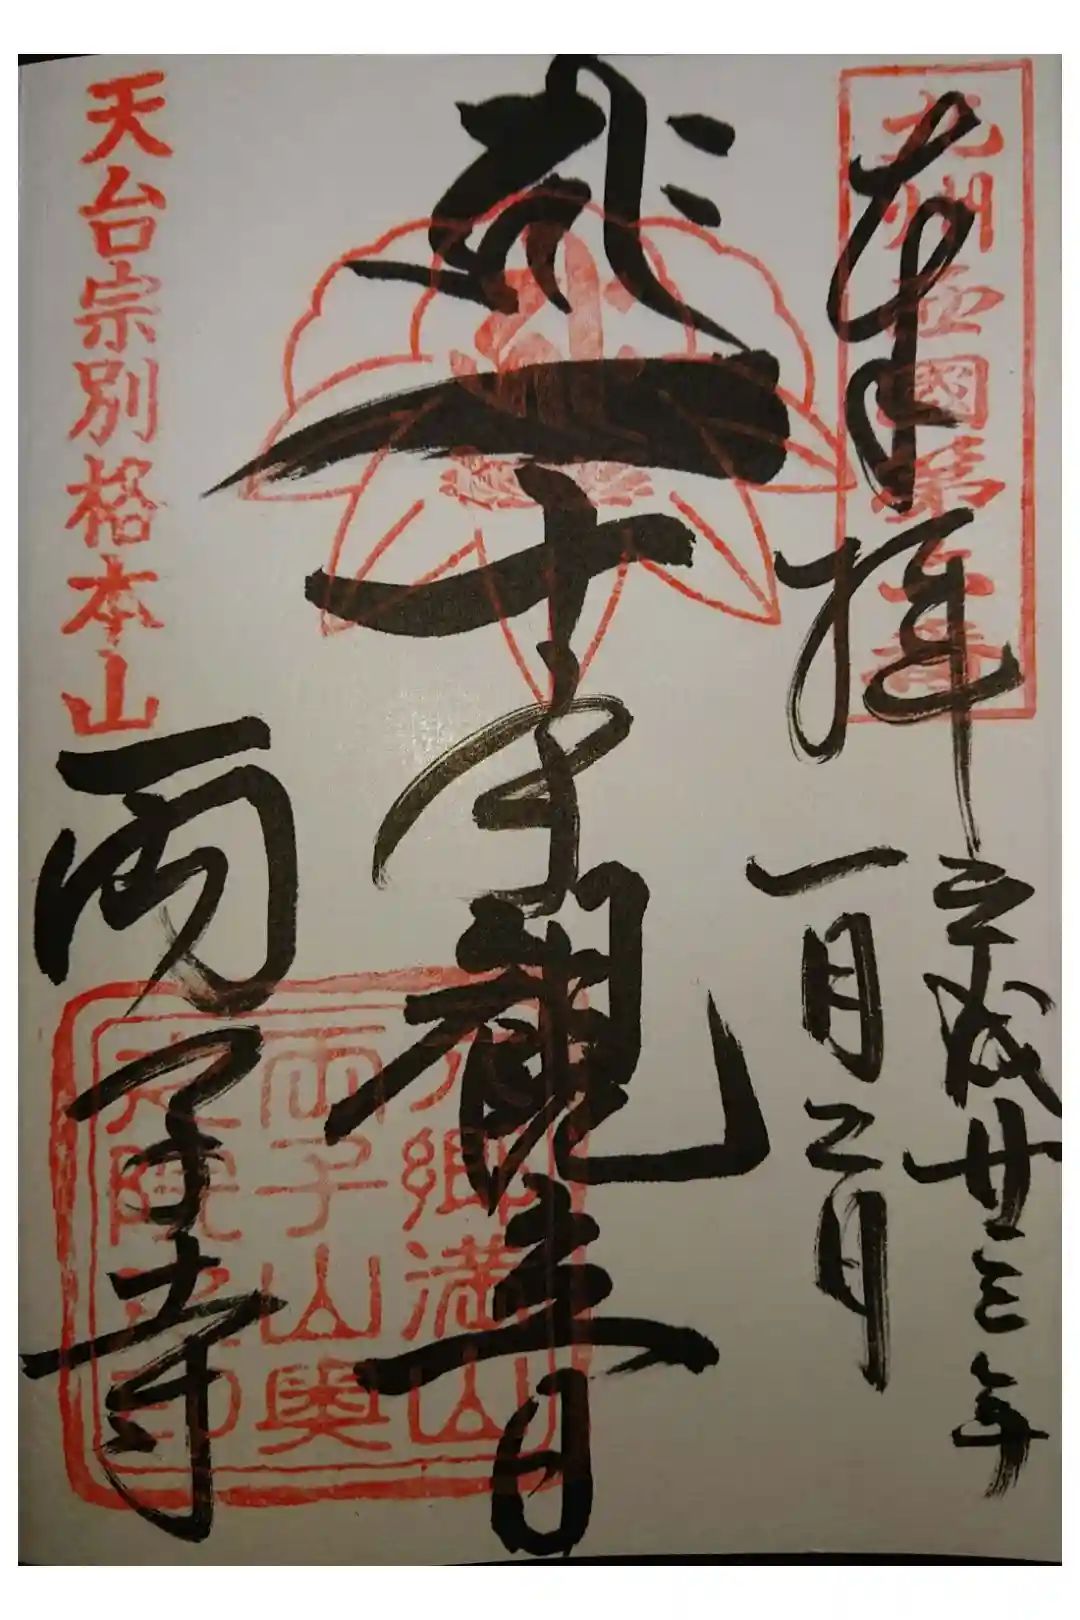 九州西國第六番
奉拝
平成廿三年
一月二日
千手観世音
六郷満山
両子山奥
之院之印
天台宗別格本山
両子寺